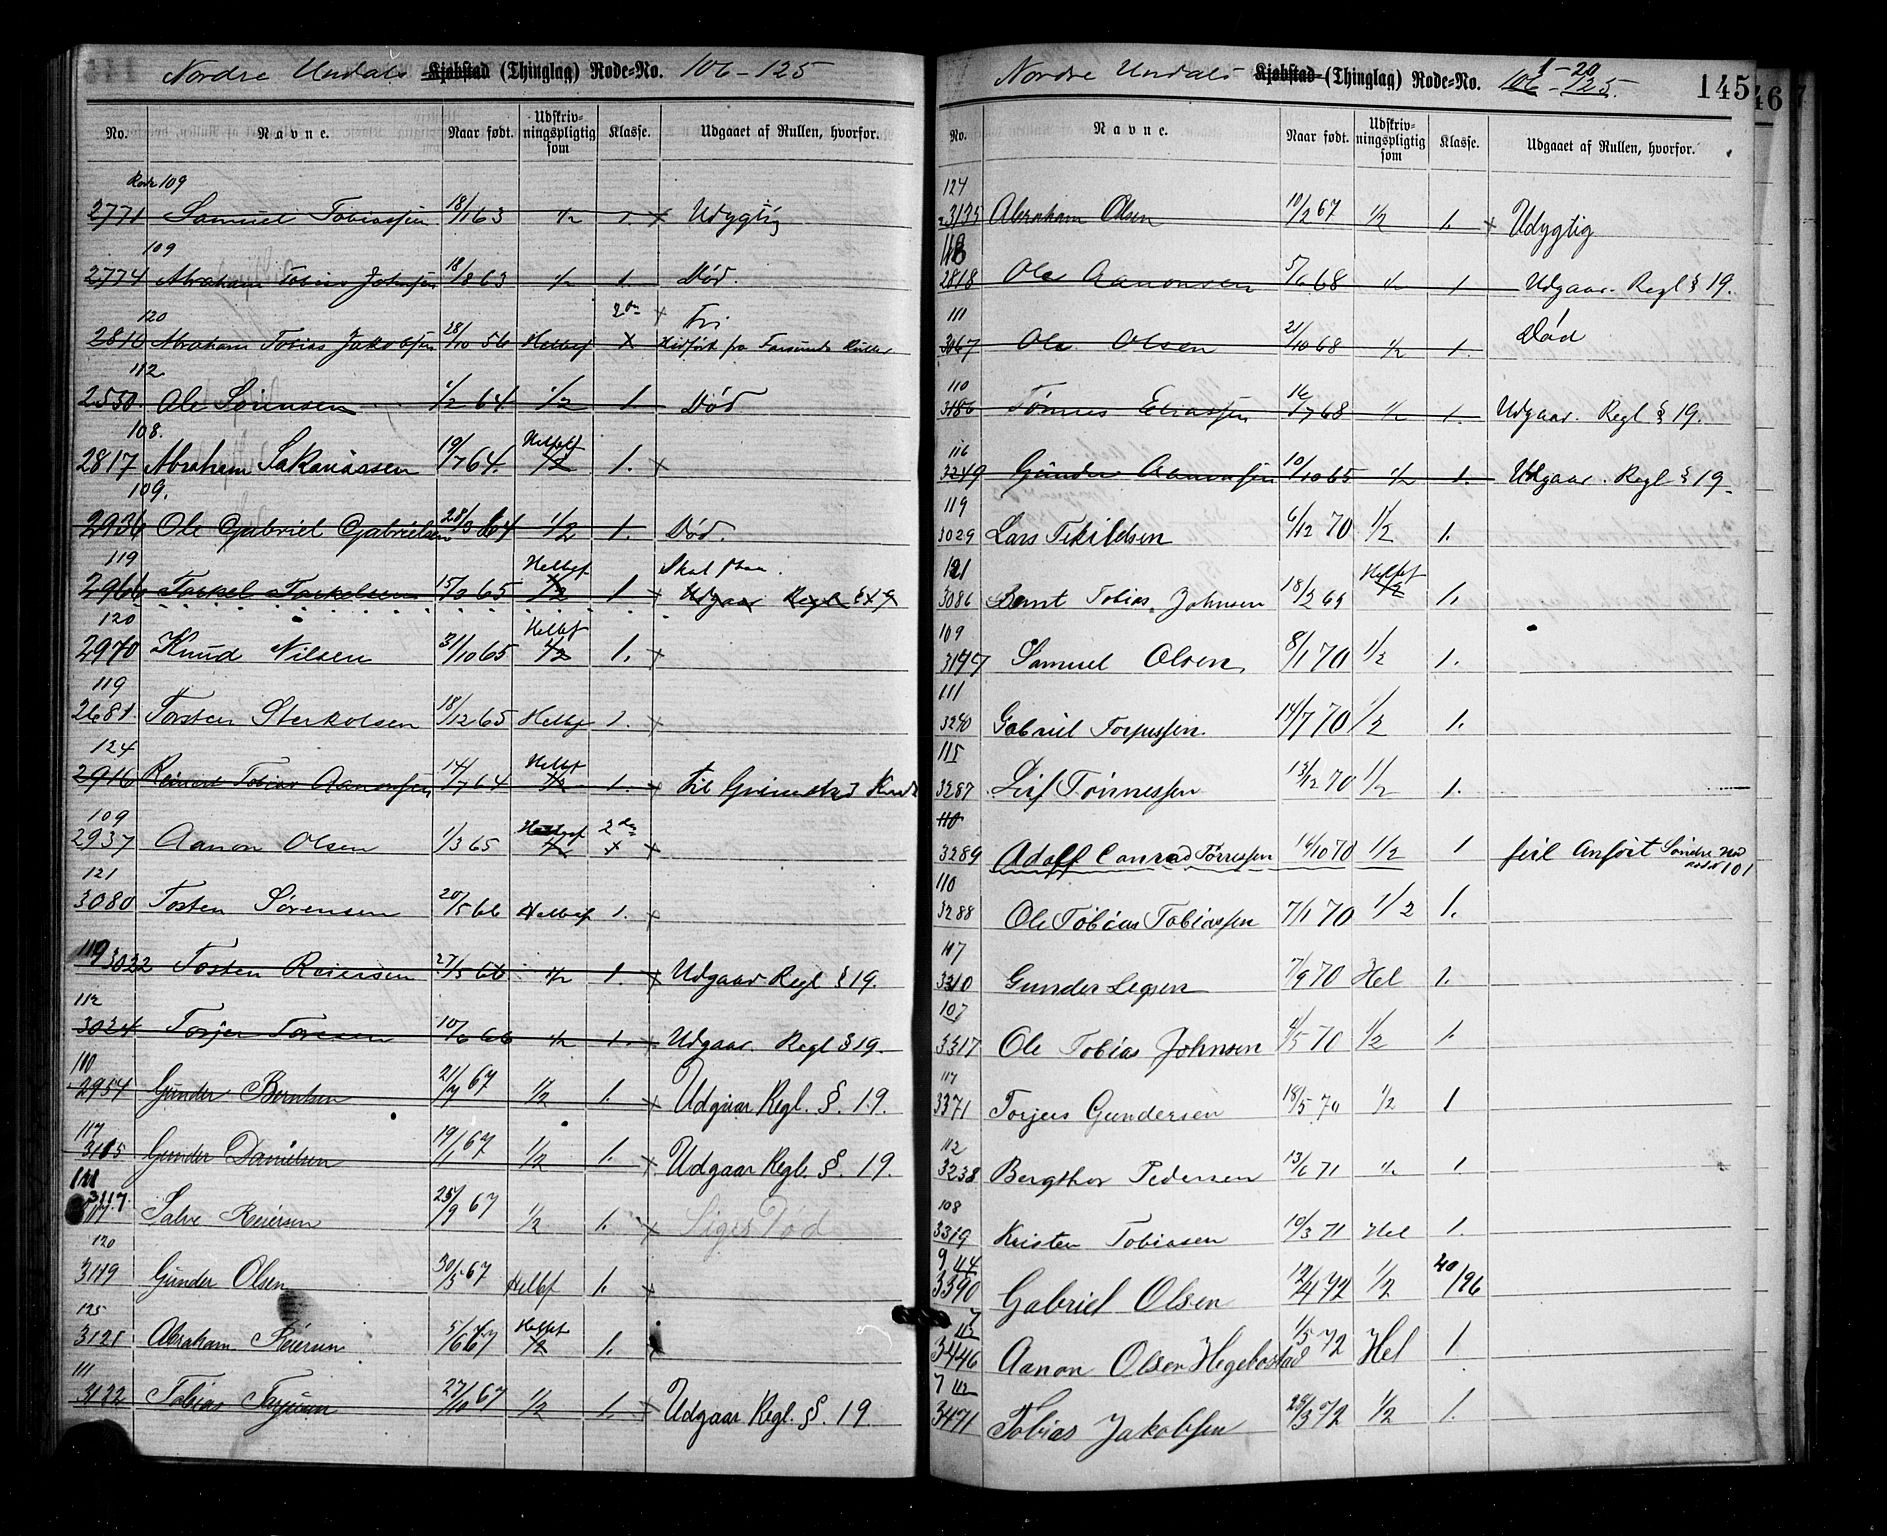 Nordre Undals Kjøbstad (Thinglag) Rode-No. 106-125
No. Navne. Naar født. Udskriv-ningspligtig som Klasse. Udgaaet af Rullen, hvorfor.
Rode 109
2771 Samuel Tobiassen 18/1 63 1/2 1. x Udygtig
109
2774 Abraham Tobias Johnsen 18/8 63 1/2 1. Død.
120 2den x Fri
2810 Abraham Tobias Jakobsen 28/10 56 Helbef x Hidført fra Farsunds Rulle
112.
2550 Ole Sörensen 1/2 64 1/2 1 Död
108. Helbef
2817 Abraham Sakariassen 19/7 64. 1/2 1. x
109.
2936 Ole Gabriel Gabrielsen 28/3 64 1/2 1. Død.
119 Helbef Skal staa.
2966 Torkel Torkelsen 15/3 65 1/2 1 x Udgaar Regl § 19
120 Helbef
2970 Knud Nilsen 31/10 65 1/2 1. x
119
2681 Torsten Sterkolsen 18/12 65 Helbef 1. x
124 Helbef
2916 Reinert Tobias Aanonsen 14/7 64 1/2 1. x til Grimstad Kreds
109 Helbef 2den
2937 Aanon Olsen 1/3 65 1/2 x x
121
3080 Tosten Sörensen 20/5 66 Helbef 1. x
119 3022 Tosten Reiersen 27/5 66 1/2 1. x Udgaar Regl § 19.
112
3024 Torjer Toresen 10/6 66 1/2 1. x Udgaar Regl § 19-
110
2954 Gunder Berntsen 21/7 67 1/2 1. x Udgaar Regl. §. 19.
117
3115 Gunder Danielsen 19/1 67 1/2 1. x Udgaar Regl. §. 19.
121
3117. Salve Reiersen 25/9 67 1/2 1. x Siges Död
120
3119 Gunder Olsen 30/5 67 Helbef 1. x
125 Helbef
3121 Abraham Reiersen 5/6 67 1/2 1. x
111
3122 Tobias 27/10 67 1/2 1. x Udgaar Regl. §. 19.
Nordre Undals Kjøbstad (Thinglag) Rode-No. 106-125. 1-20 145
46
No. Navne. Naar født. Udskriv-ningspligtig som Klasse. Udgaaet af Rullen, hvorfor.
124
3135 Abraham Olsen 10/2 67 1/2 1. x Udygtig
118
2818 Ole Aanonsen 5/6 68 1/2 1. Udgaar. Regl § 19.
111
3067 Ole Olsen 21/10 68 1/2 1. Död
110
3186 Tönnes Eliassen 16/7 68 1/2 1. Udgaar. Regl § 19.
116
3249 Gunder Aanonsen 10/10 65 1/2 1. Udgaar. Regl § 19-
119
3029 Lars Tekildsen 6/12 70 1/2 1.
121 Helbef
3086 Bernt Tobias Johnsen 18/2 69 1/2 1.
109
3197 Samuel Olsen 8/1 70 1/2 1.
111
3240 Gabriel Torjussen. 14/7 70 1/2 1.
115
3287 Leif Tönnessen 13/12 70 1/2 1.
110
3289 Adolf Conrad Törressen 16/10 70 1/2 1 feil Anført Söndre Und rode 101
110
3288 Ole Tobias Tobiassen 7/1 70 1/2 1.
117
3310 Gunder 7/9 70 Hel 1.
107
3317 Ole Tobias Johnsen 4/5 70 1/2 1.
117
3371 Torjus Gundersen 18/5 70 1/2 1
112
3238 Bergthor Pedersen 13/6 71 1/2 1
108
3319 Kristen Tobiasen 10/3 71 Hel 1.
9 114
3390 Gabriel Olsen 12/4 72 1/2 40/96
7 112
3446 Aanon Olsen Hegebostad 1/5 72 Hel 1
7 112
3471 Tobias Jakobsen 28/3 72 1/2 1.